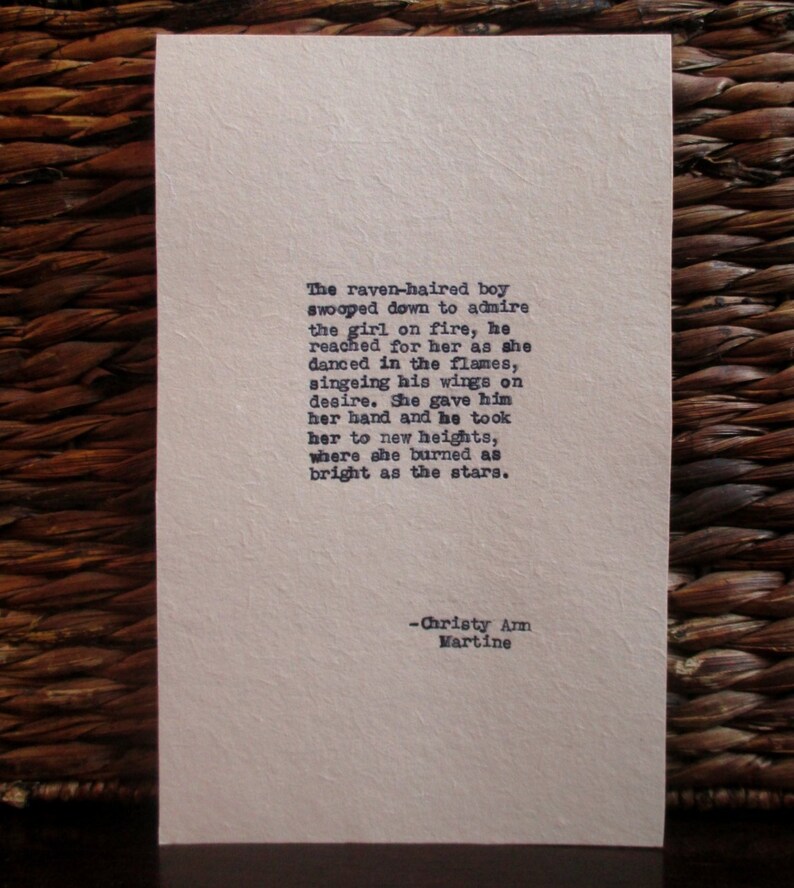 The raven-haired boy
swooped down to admire
the girl on fire, he
reached for her as she
danced in the flames,
singeing his wings on
desire. She gave him
her hand and he took
her to new heights,
where she burned as
bright as the stars.
-Christy Ann
Martine